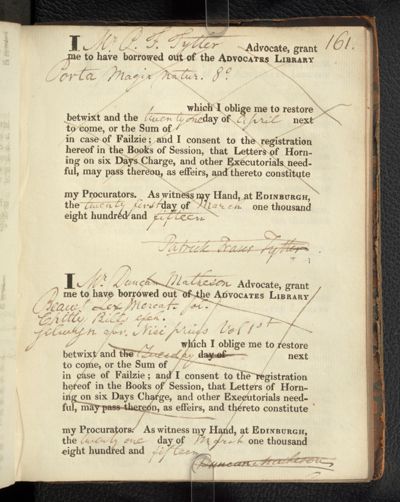 161.
I Mr. P. F. Tytler Advocate, grant
me to have borrowed out of the ADVOCATES LIBRARY
Porta Magia Natur. 8o.
which I oblige me to restore
betwixt and the twenty one day of April next
to come, or the Sum of
in case of Failzie; and I consent to the registration
hereof in the Books of Session, that Letters of Horn-
ing on six Days Charge, and other Executorials need-
ful, may pass thereon, as effeirs, and thereto constitute
my Procurators. As witness my Hand, at EDINBURGH,
the twenty first day of March one thousand
eight hundred and fifteen
Patrick Fraser Tytler
I Mr. Duncan Matheson Advocate, grant
me to have borrowed out of the ADVOCATES LIBRARY
Beaws Lex Mercat. fol.
Chitty Bills
Nisi prius Vol 1st
which I oblige me to restore
betwixt and the Tuesday day of next
to come, or the Sum of
in case of Failzie; and I consent to the registration
hereof in the Books of Session, that Letters of Horn-
ing on six Days Charge, and other Executorials need-
ful, may pass thereon, as effeirs, and thereto constitute
my Procurators. As witness my Hand, at EDINBURGH,
the twenty one day of March one thousand
eight hundred and fifteen
Duncan Matheson